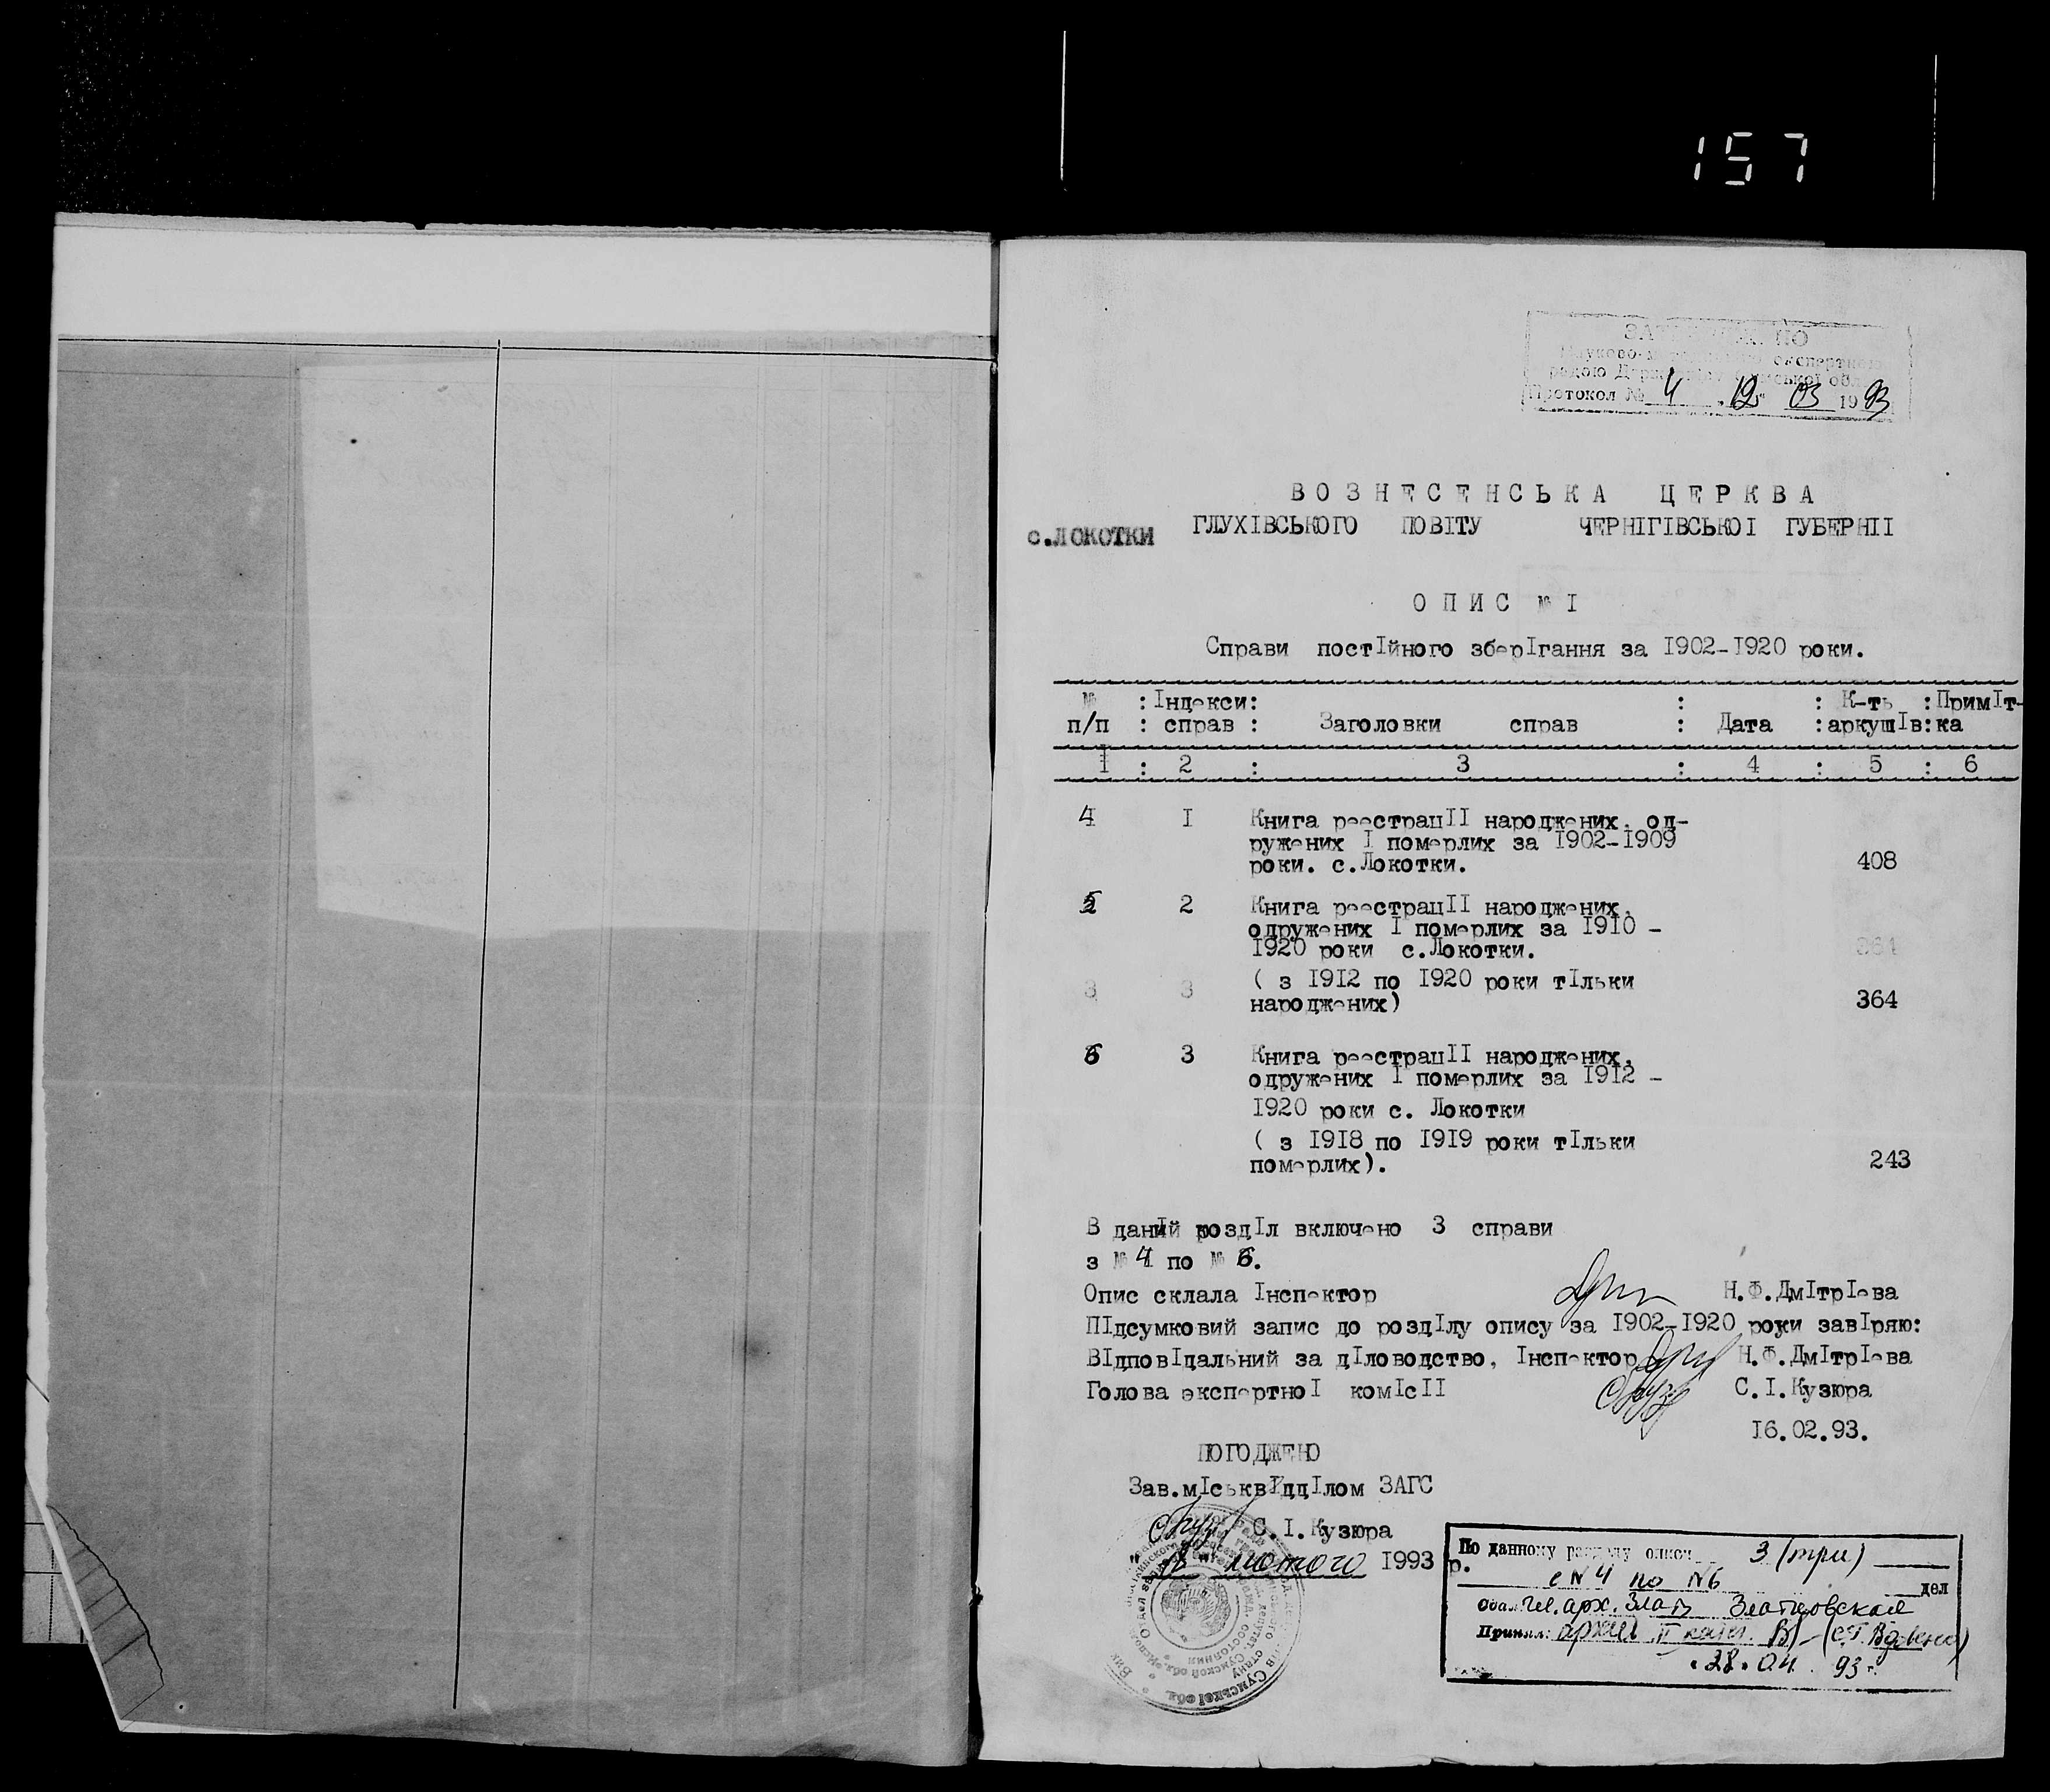 157
Протокол № 4 12 03 1993
ВОЗНЕСЕНСЬКА ЦЕРКВА
с.ЛОКОТКИ ГЛУХІВСЬКОГО ПОВІТУ ЧЕРНІГІВСЬКОІ ГУБЕРНІІ
ОПИС № І
Справи постІйного зберІгання за І902-І920 роки.
№ : Індекси: : : К-ть : ПримІт-
п/п : справ : Заголовки справ : Дата :аркушІв:ка
І : 2 : 3 : 4 : 5 : 6
4 І Книга реестрацІІ народжених, од-
ружених І померлих за І902-І909
роки. с.Локотки. 408
5 2 Книга реестрацІІ народжених,
одружених І померлих за І9І0 -
І920 роки с.Локотки. 364
3 3 ( з І9І2 по І920 роки тІльки
народжених) 364
6 3 Книга реестрацІІ народжених,
одружених І померлих за І9І2 -
І920 роки с. Локотки
( з І9І8 по І9І9 роки тІльки
померлих). 243
В даний роздІл включено 3 справи
з № 4 по № 6.
Опис склала Інспектор Н.Ф.ДмІтрІева
ПІдсумковий запис до роздІлу опису за І902-І920 роки завІряю:
ВІдповІдальний за дІловодство, Інспектор Н.Ф.ДмІтрІева
Голова експертноІ комІсІІ С.І.Кузюра
І6.02.93.
ПОГОДЖЕНО
Зав.мІськвІддІлом ЗАГС
С.І.Кузюра
лютого І993 р.
По данному разделу описи 3 (три)
с №4 по №6 дел
гл. арх. Злат Златковская
Принял: архив. ІІ катег.
28.04. 93 г.